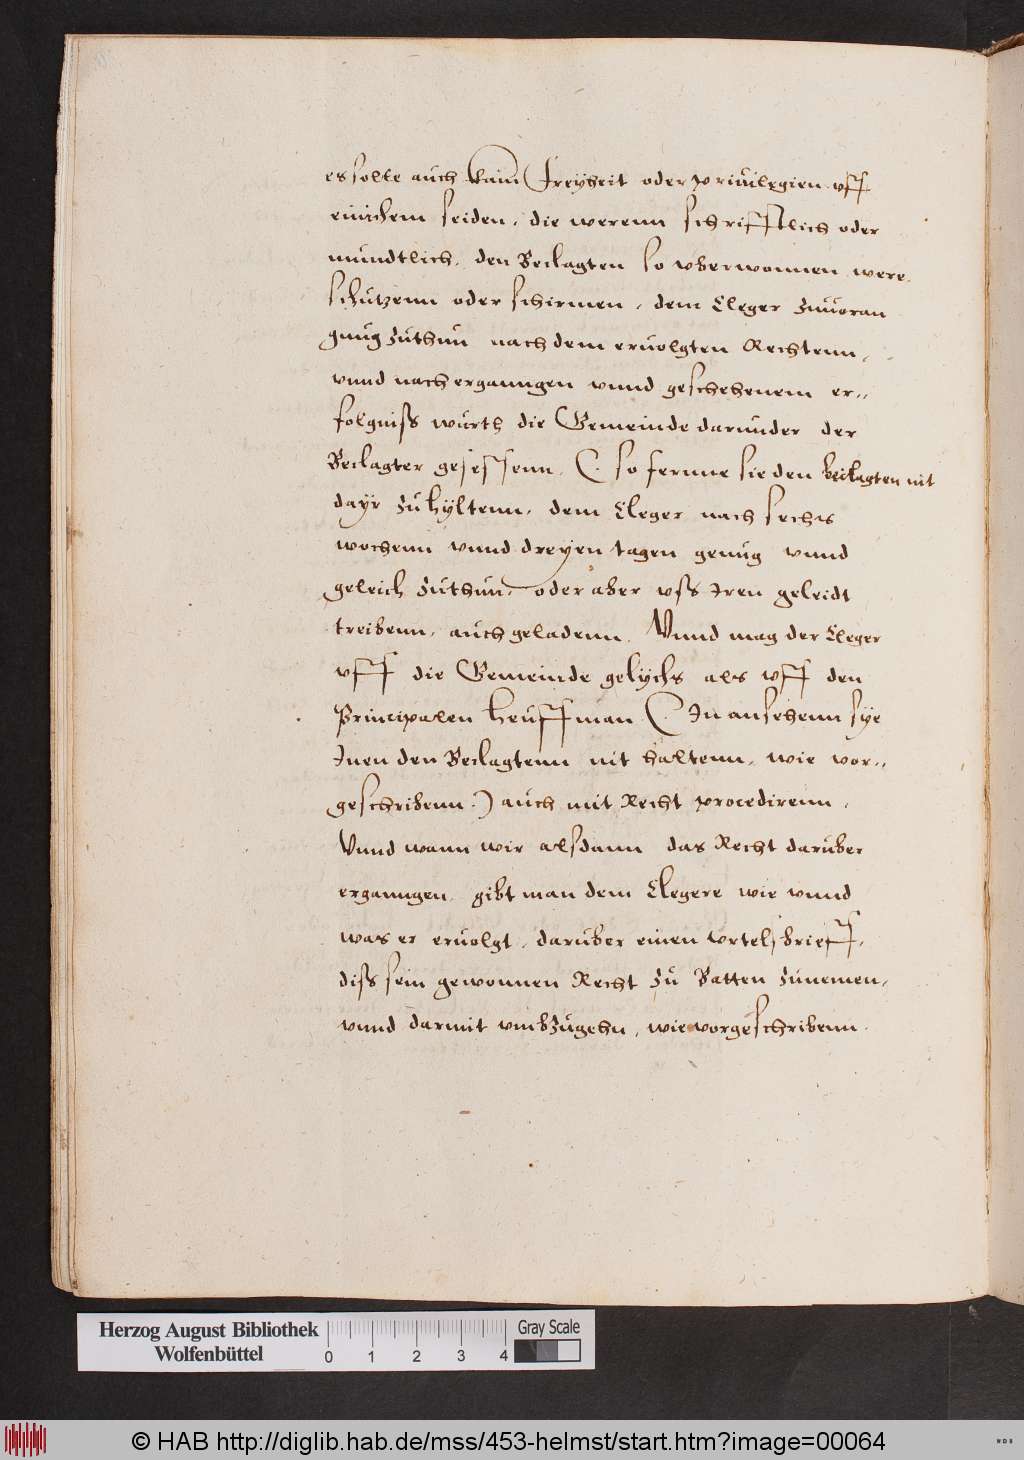 es solle auch kain Freyheit oder privilegien uff
einichem seiden, die werenn schrifftlich oder
mundtlich, den Beclagten so uberwonnen were
schutzenn oder schirmen, dem Cleger zuuoran
gnug zuthun nach dem eruolgten Rechtenn,
unnd nach erganngen unnd geschehenem er,,
folgniss wurth die Gemeinde darunder der
Beclagter gesessenn, (. so fernne sie den beclagten nit
dayr zu hyltenn, dem Cleger nach sechs
wochenn unnd dreyen tagen genug unnd
geleich zuthun, oder aber uss Iren geleidt
treibenn, auch geladenn. Unnd mag der Cleger
uff die Gemeinde gelychs als uff den
Principalen heuffman (. In ansehenn sye
Inen den Beclagtenn nit haltenn, wie vor,,
geschribenn.) auch mit Recht procedirenn,
Unnd wann wir alsdann das Recht daruber
erganngen, gibt man dem Clegere wie unnd
was er eruolgt, daruber einen urtelsbrieff,
diss sein gewonnen Recht zu Batten zunemen,
unnd darmit umbzugehn, wie vorgeschribenn.
Herzog August Bibliothek
Wolfenbüttel
0 1 2 3 4
Gray Scale
© HAB http://diglib.hab.de/mss/453-helmst/start.htm?image=00064